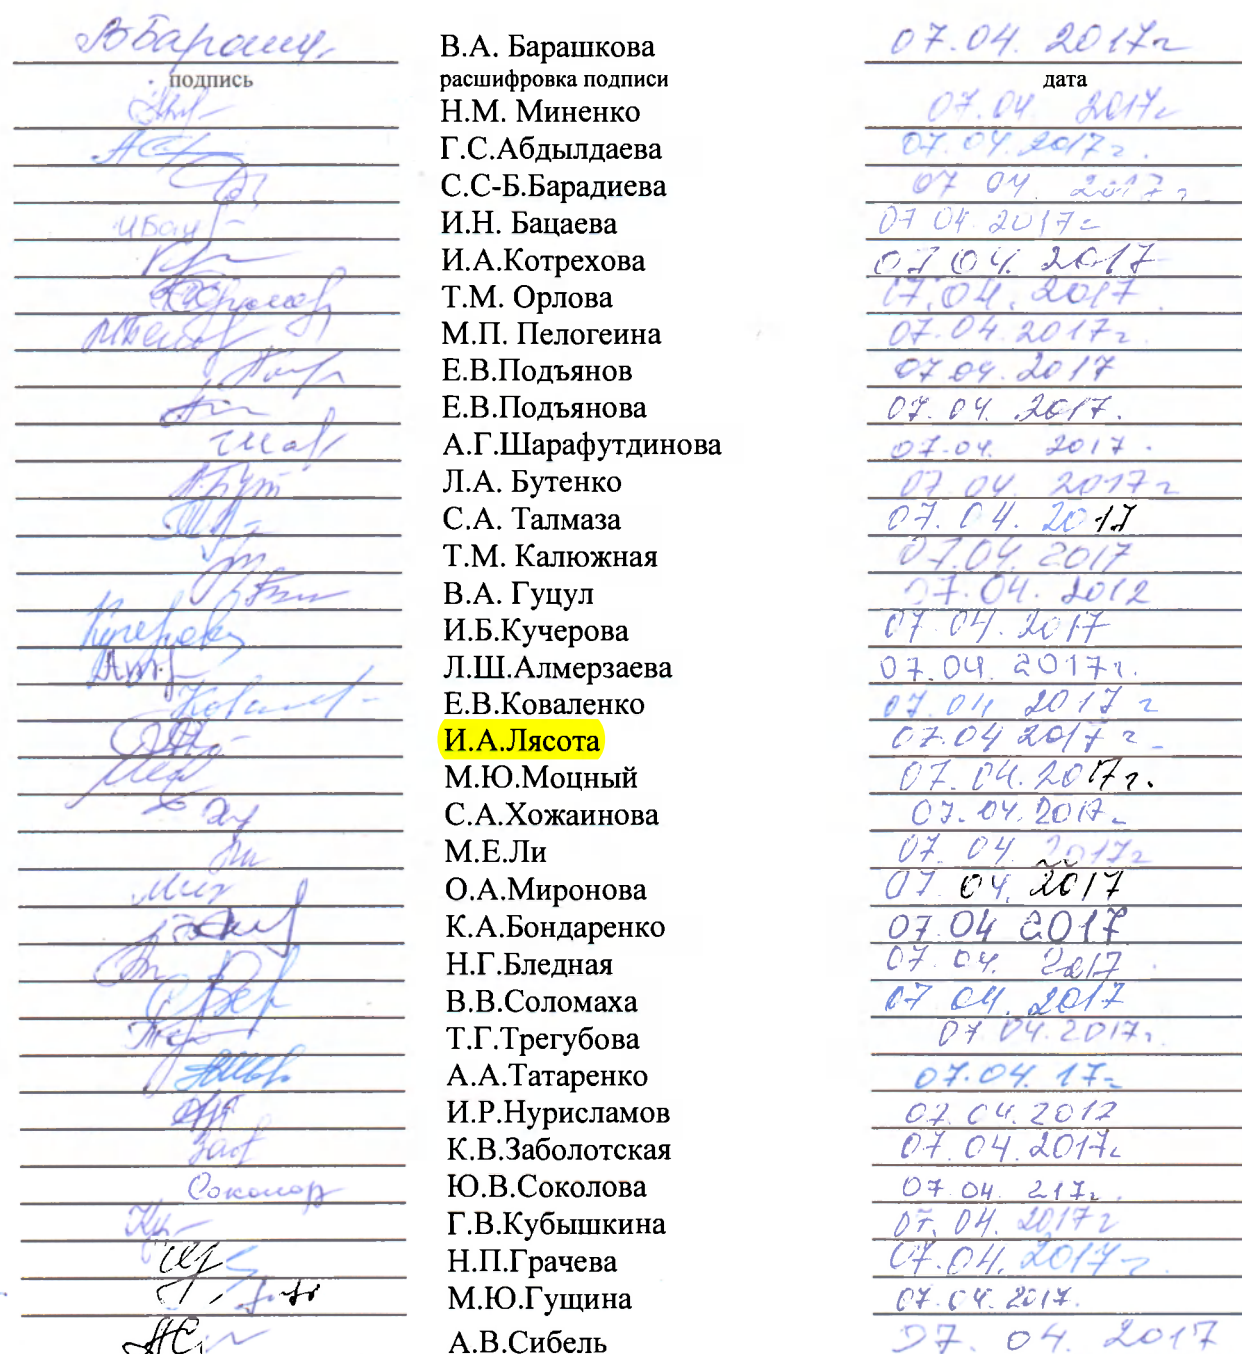 В.А. Барашкова 07.04. 2017г
подпись расшифровка подписи дата
Н.М. Миненко 07.04 2017г
Г.С.Абдылдаева 07.04.2017г.
С.С-Б.Барадиева 07 04. 2017г
И.Н. Бацаева 07 04 2017г
И.А.Котрехова 07 04. 2017
Т.М. Орлова 17.04. 2017
М.П. Пелогеина 07.04.2017г
Е.В.Подъянов 07 04. 2017
Е.В.Подъянова 07.04. 2017.
Шар А.Г.Шарафутдинова 07.04. 2017.
Л.А. Бутенко 07 04. 2017г
С.А. Талмаза 07.04. 2017
Т.М. Калюжная 07.04. 2017
В.А. Гуцул 07.04. 2012
Кучерова И.Б.Кучерова 07.04. 2017
Л.Ш.Алмерзаева 07.04. 2017г.
Е.В.Коваленко 07.04 2017г
И.А.Лясота 07.04 2017г
М.Ю.Моцный 07.04.2017г.
С.А.Хожаинова 07.04.2017г
Ли М.Е.Ли 07.04 2017г
О.А.Миронова 07 04. 2017
К.А.Бондаренко 07.04 2017
Н.Г.Бледная 07.04. 2017
В.В.Соломаха 07 04. 2017
Т.Г.Трегубова 07 04.2017г
А.А.Татаренко 07.04. 17г
И.Р.Нурисламов 07.04.2012
Заб К.В.Заболотская 07.04.2017г
Соколов Ю.В.Соколова 07 04 217г.
Г.В.Кубышкина 07. 04. 2017г
Н.П.Грачева 07.04. 2017г
М.Ю.Гущина 07.04.2017.
А.В.Сибель 07. 04. 2017